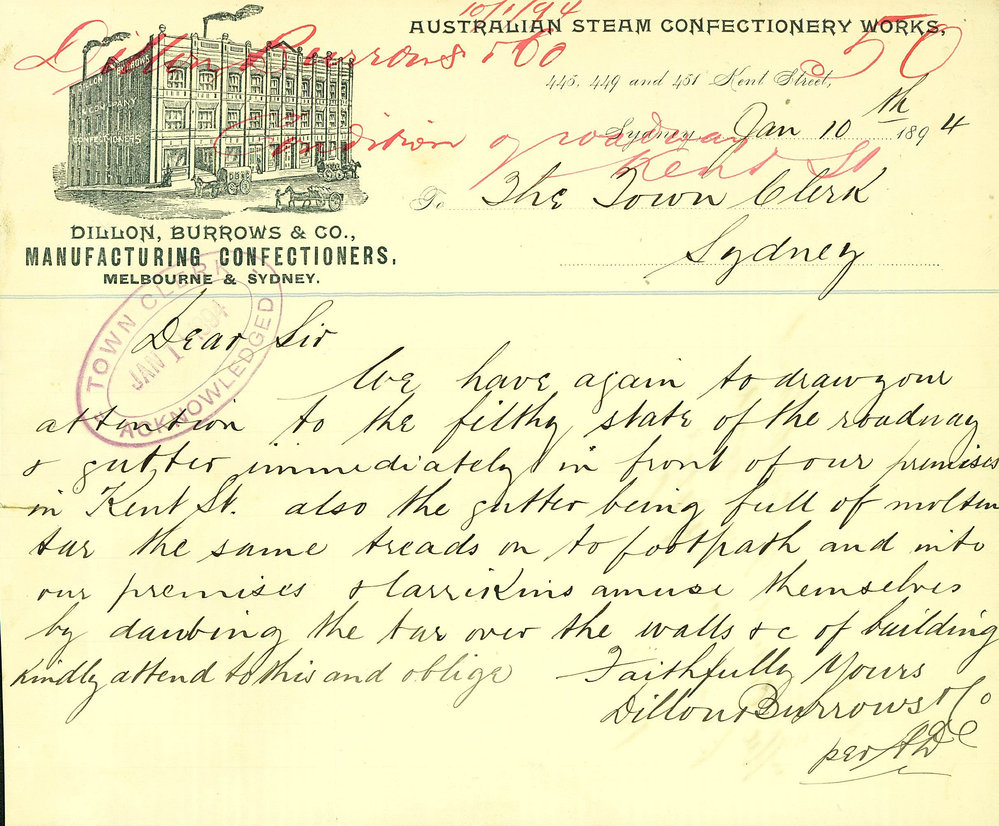 10/1/94
AUSTRALIAN STEAM CONFECTIONERY WORKS.
Dillon Burrows & Co
50
445, 449 and 451 Kent Street,
Sydney Jan 10th 1894
Condition of roadway
Kent St
To The Town Clerk
Sydney
DILLON BURROWS
& COMPANY
CONFECTIONERS
DILLON, BURROWS & CO.,
MANUFACTURING CONFECTIONERS,
MELBOURNE & SYDNEY.
TOWN CLERK
JAN 1894
ACKNOWLEDGED
Dear Sir
We have again to draw your
attention to the filthy state of the roadway
& gutter immediately in front of our premises
in Kent St. also the gutter being full of molten
tar the same treads on to footpath and into
our premises & larrikins amuse themselves
by daubing the tar over the walls &c of building
kindly attend to this and oblige
Faithfully Yours
Dillon Burrows & Co
per